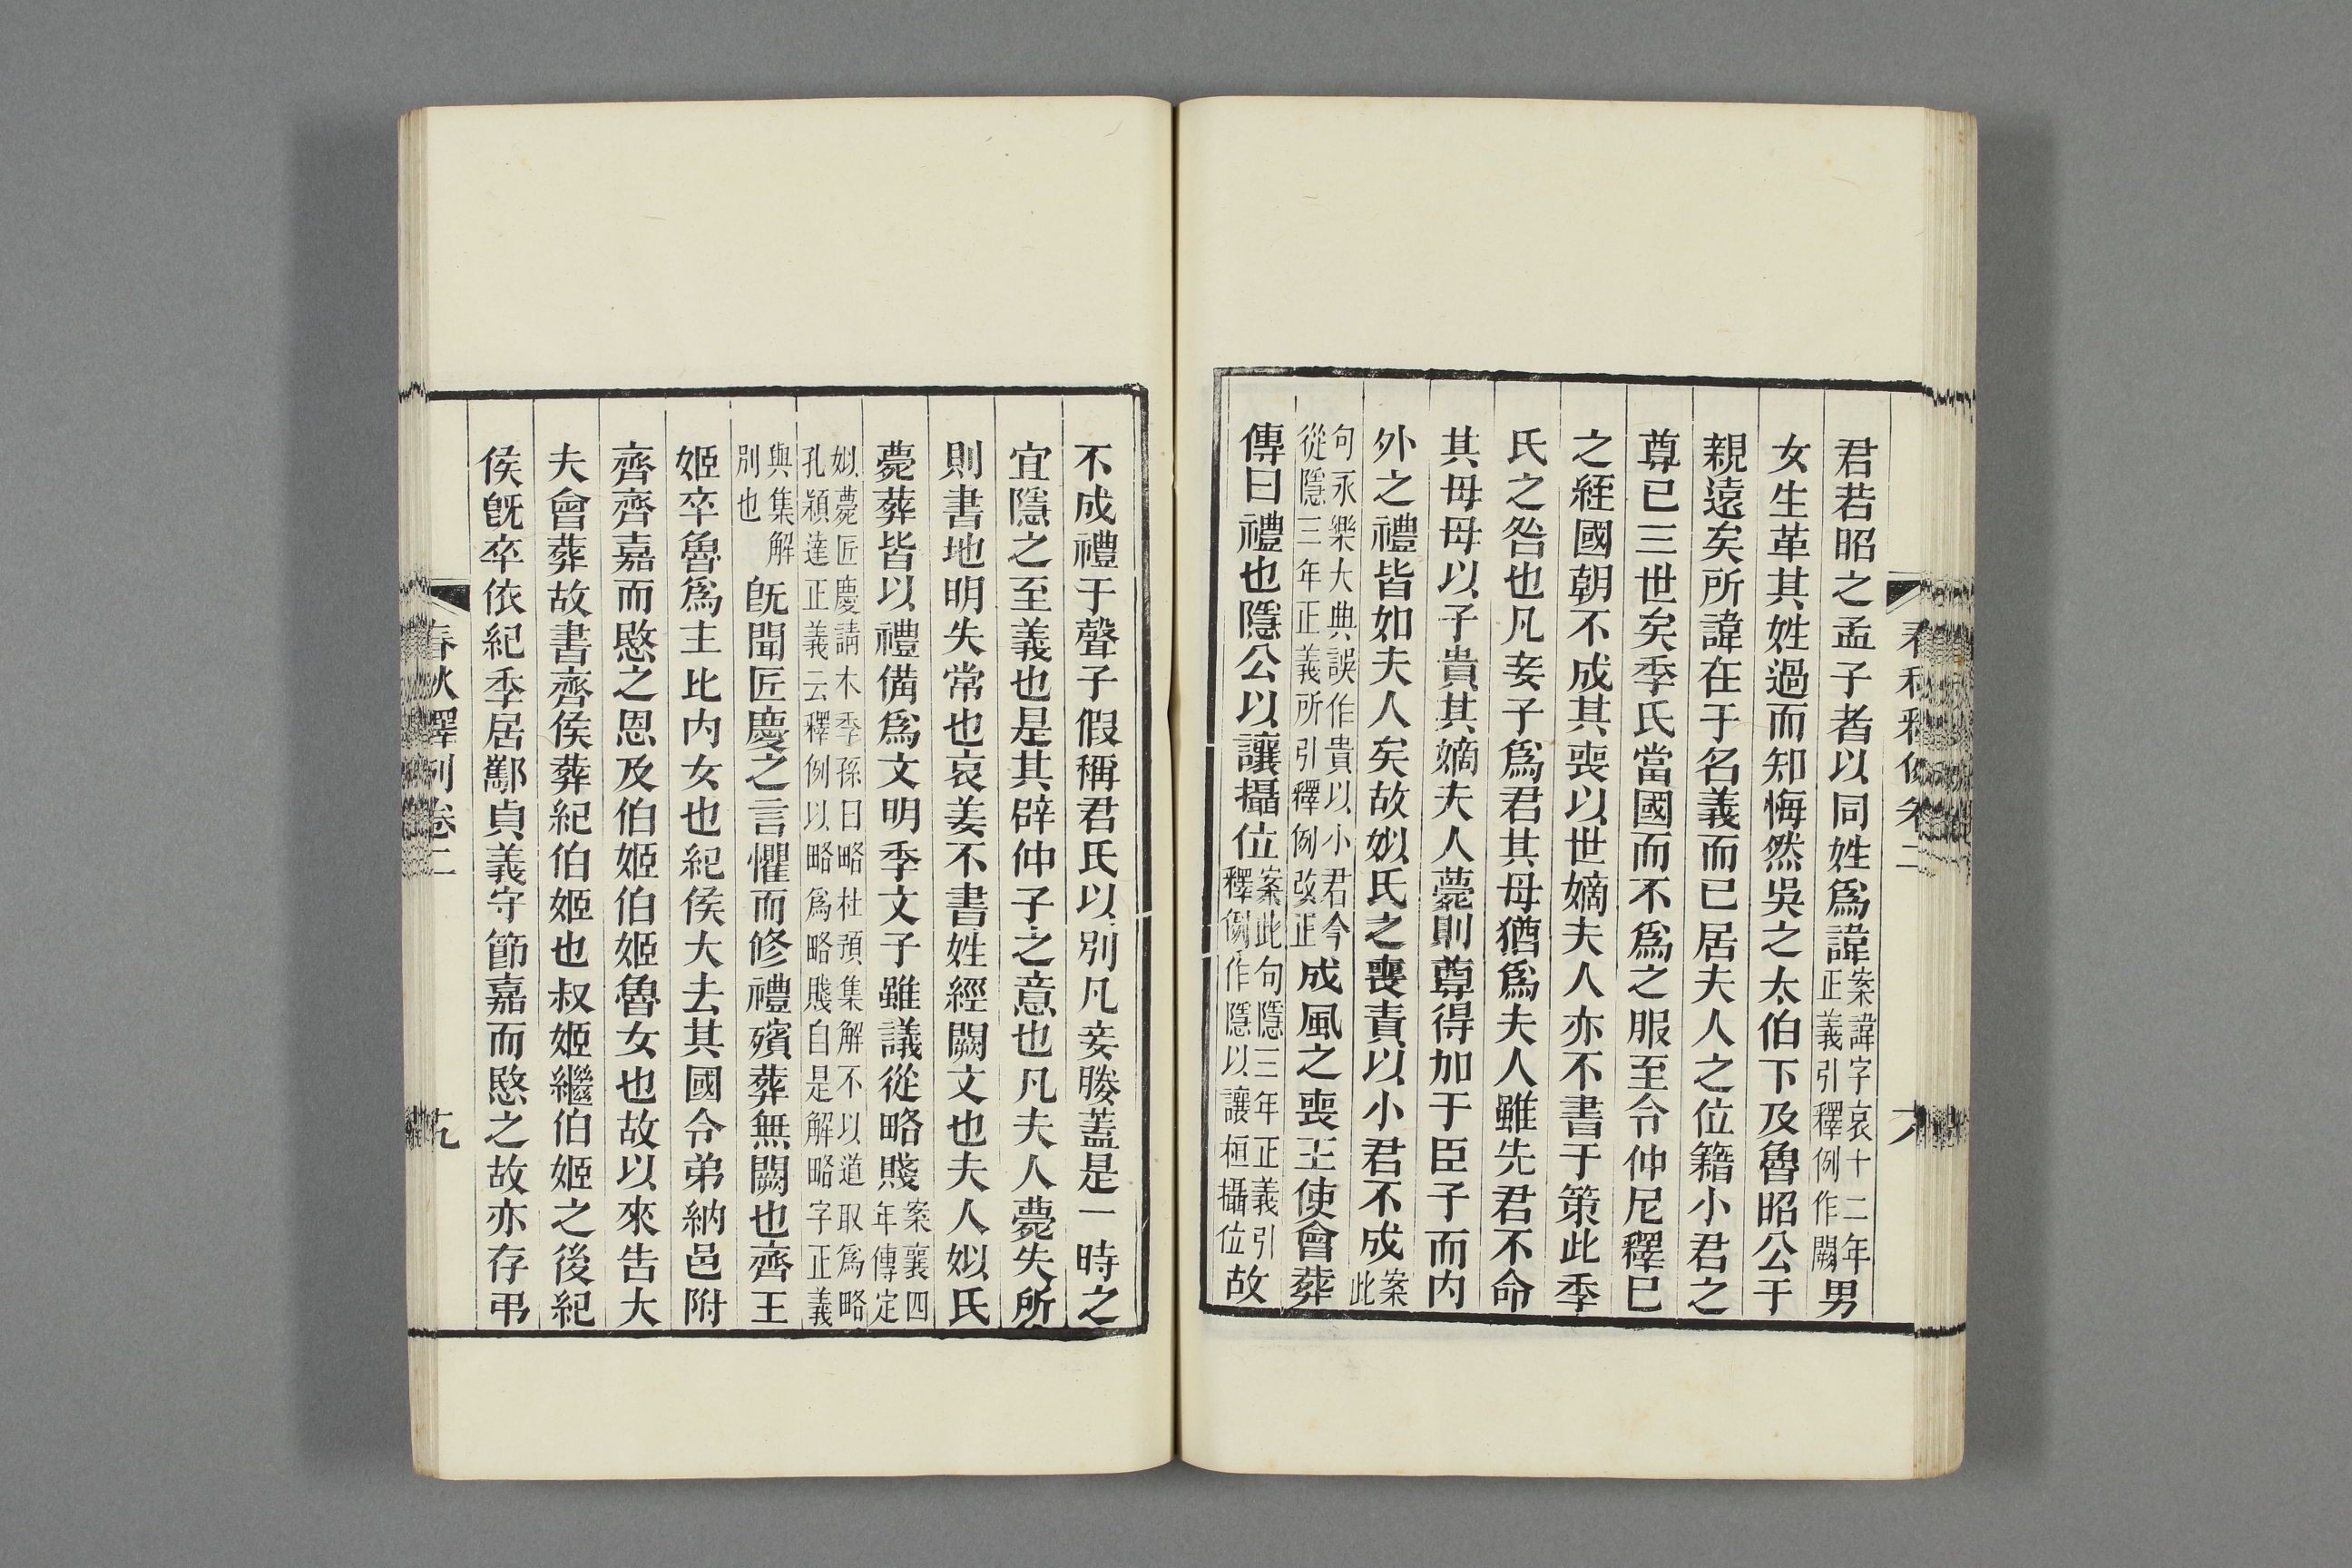 君若昭之孟子者以同姓爲諱案諱字哀十二年正義引釋例作闕男
女生革其姓過而知悔然吳之太伯下及魯昭公于
親遠矣所諱在于名義而已居夫人之位籍小君之
尊已三世矣季氏當國而不爲之服至令仲尼釋已
之絰國朝不成其喪以世嫡夫人亦不書于策此季
氏之咎也凡妾子爲君其母猶爲夫人雖先君不命
其母母以子貴其嫡夫人薨則尊得加于臣子而内
外之禮皆如夫人矣故姒氏之喪責以小君不成案此
句永樂大典誤作貴以小君今從隱三年正義所引釋例改正成風之喪王使會葬
傳曰禮也隱公以讓攝位案此句隱三年正義引釋例作隱以讓桓攝位故
不成禮于聲子假稱君氏以別凡妾媵蓋是一時之
宜隱之至義也是其辟仲子之意也凡夫人薨失所
則書地明失常也哀姜不書姓經闕文也夫人姒氏
薨葬皆以禮備爲文明季文子雖議從略賤案襄四年傳定
姒薨匠慶請木季孫曰略杜預集解不以道取爲略孔穎達正義云釋例以略爲略賤自是解略字正義
與集解別也旣聞匠慶之言懼而修禮殯葬無闕也齊王
姬卒魯爲主比内女也紀侯大去其國令弟納邑附
齊齊嘉而愍之恩及伯姬伯姬魯女也故以來告大
夫會葬故書齊侯葬紀伯姬也叔姬繼伯姬之後紀
侯旣卒依紀季居酅貞義守節嘉而愍之故亦存弔
春秋釋例卷二